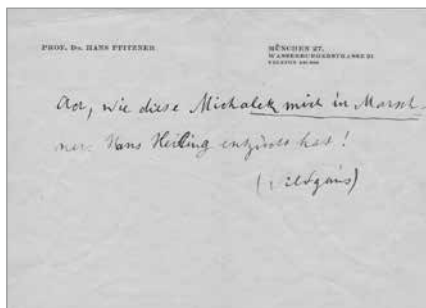 PROF. DR. HANS PFITZNER
MÜNCHEN 27,
WASSERBURGERSTRASSE 21
TELEFON
wie diese Michalek mich in Marsch-
ners Hans Heiling entzückt hat!
(Wildgans)